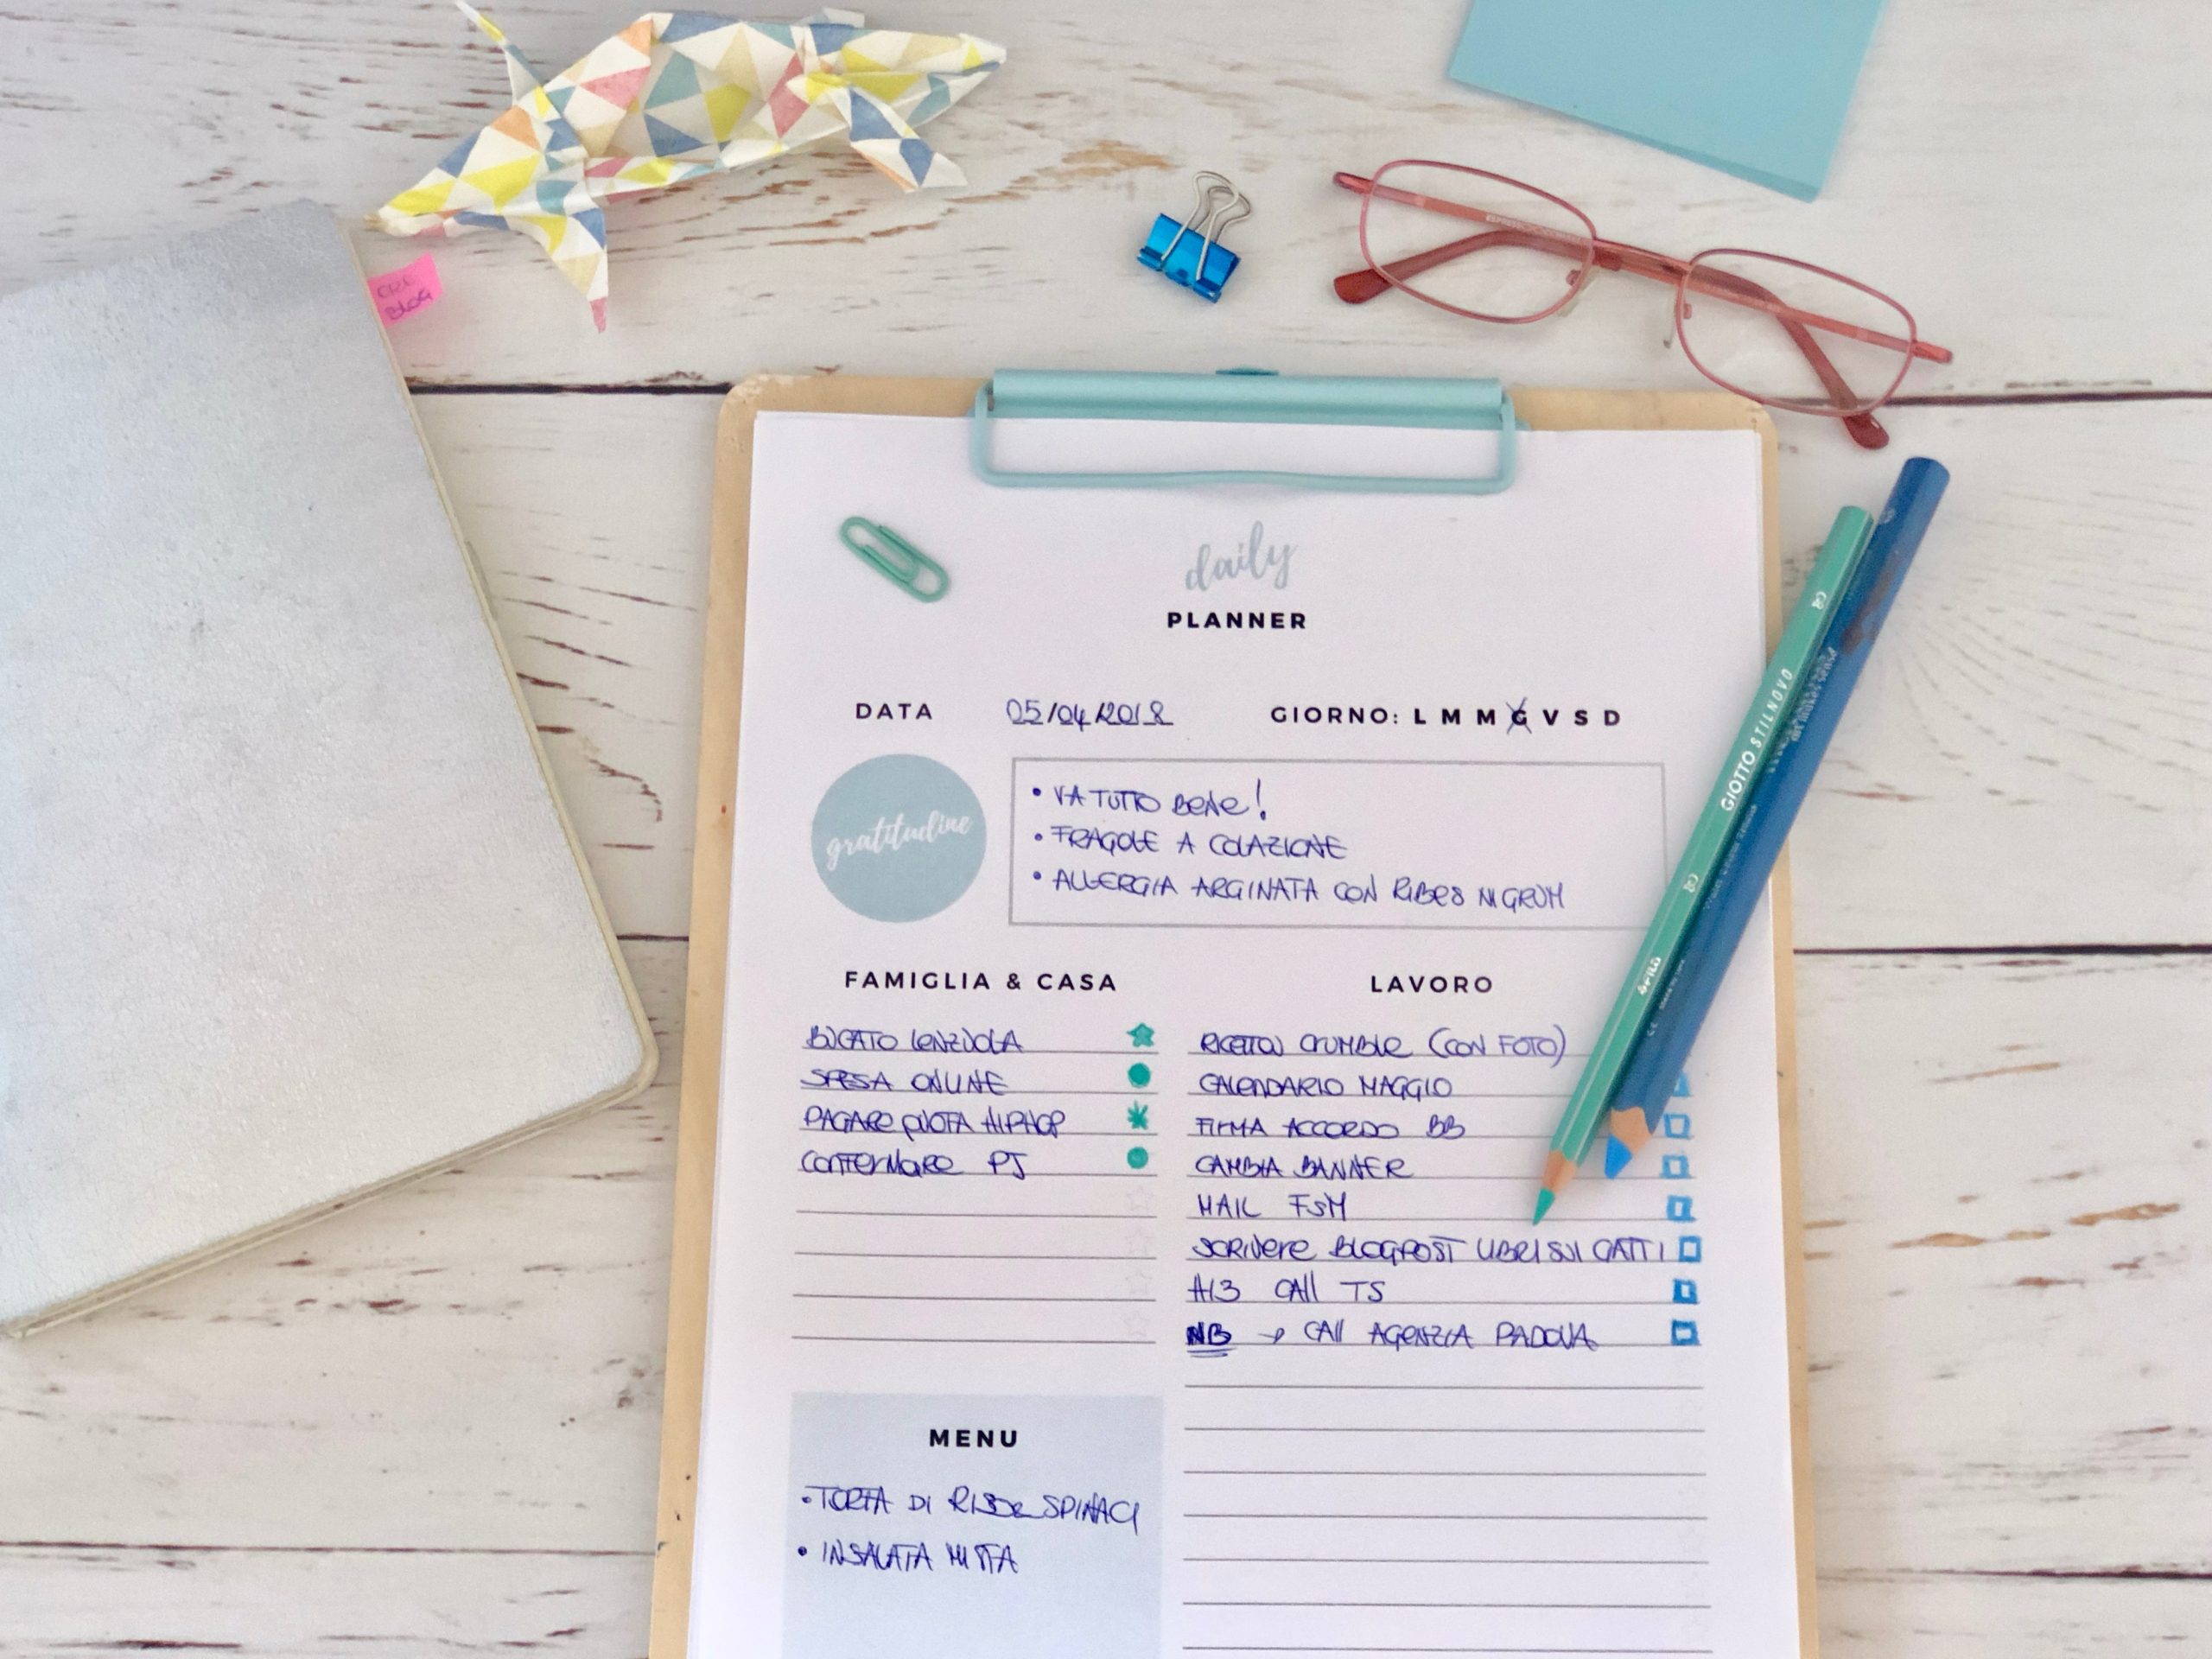 ORE
BLOG
daily
PLANNER
DATA 05/04/2018 GIORNO: L M M G V S D
gratitudine
• VA TUTTO BENE!
• FRAGOLE A COLAZIONE
• ALLERGIA ARGINATA CON RIBES NIGRUM
FAMIGLIA & CASA
BUCATO LENZUOLA
SPESA ONLINE
PAGARE QUOTA HIPHOP
CONFERMARE PJ
LAVORO
RICETTA CRUMBLE (CON FOTO)
CALENDARIO MAGGIO
FIRMA ACCORDO BB
CAMBIA BANNER
MAIL FSM
SCRIVERE BLOGPOST LIBRI SUI GATTI
H13 CALL TS
NB → CALL AGENZIA PADOVA
MENU
• TORTA DI RISO e SPINACI
• INSALATA MISTA
GIOTTO STILNOVO